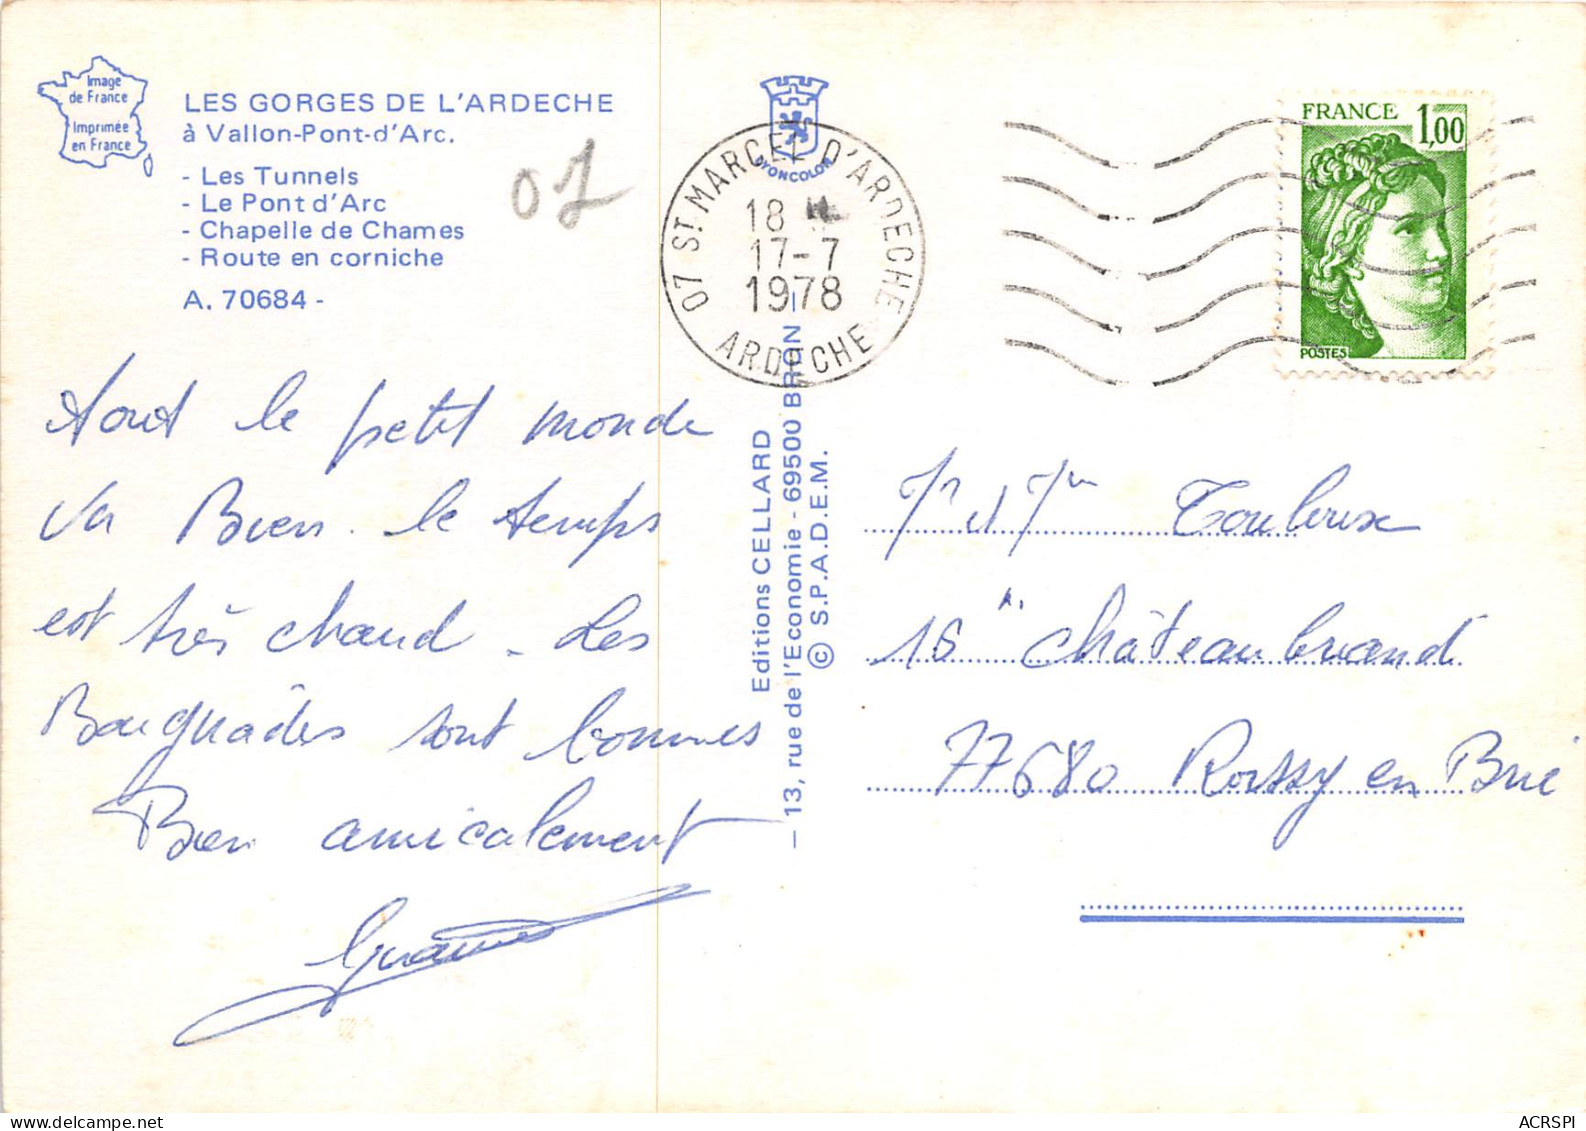 Image
de France
Imprimée
en France
LES GORGES DE L'ARDECHE
à Vallon-Pont-d'Arc.
- Les Tunnels
- Le Pont d'Arc
- Chapelle de Chames
- Route en corniche
A. 70684 -
07
Tout le petit monde
va Bien. le temps
est très chaud - Les
Baignades sont bonnes
Bien amicalement
DYONCOLOR
07 ST MARCEL D'ARDECHE
18 H
17-7
1978
ARDECHE
Editions CELLARD
- 13, rue de l'Economie - 69500 BRON -
© S.P.A.D.E.M.
FRANCE 1,00
POSTES
Mr et Mme Toulouse
16 Châteaubriand
77680 Roissy en Brie
ACRSPI